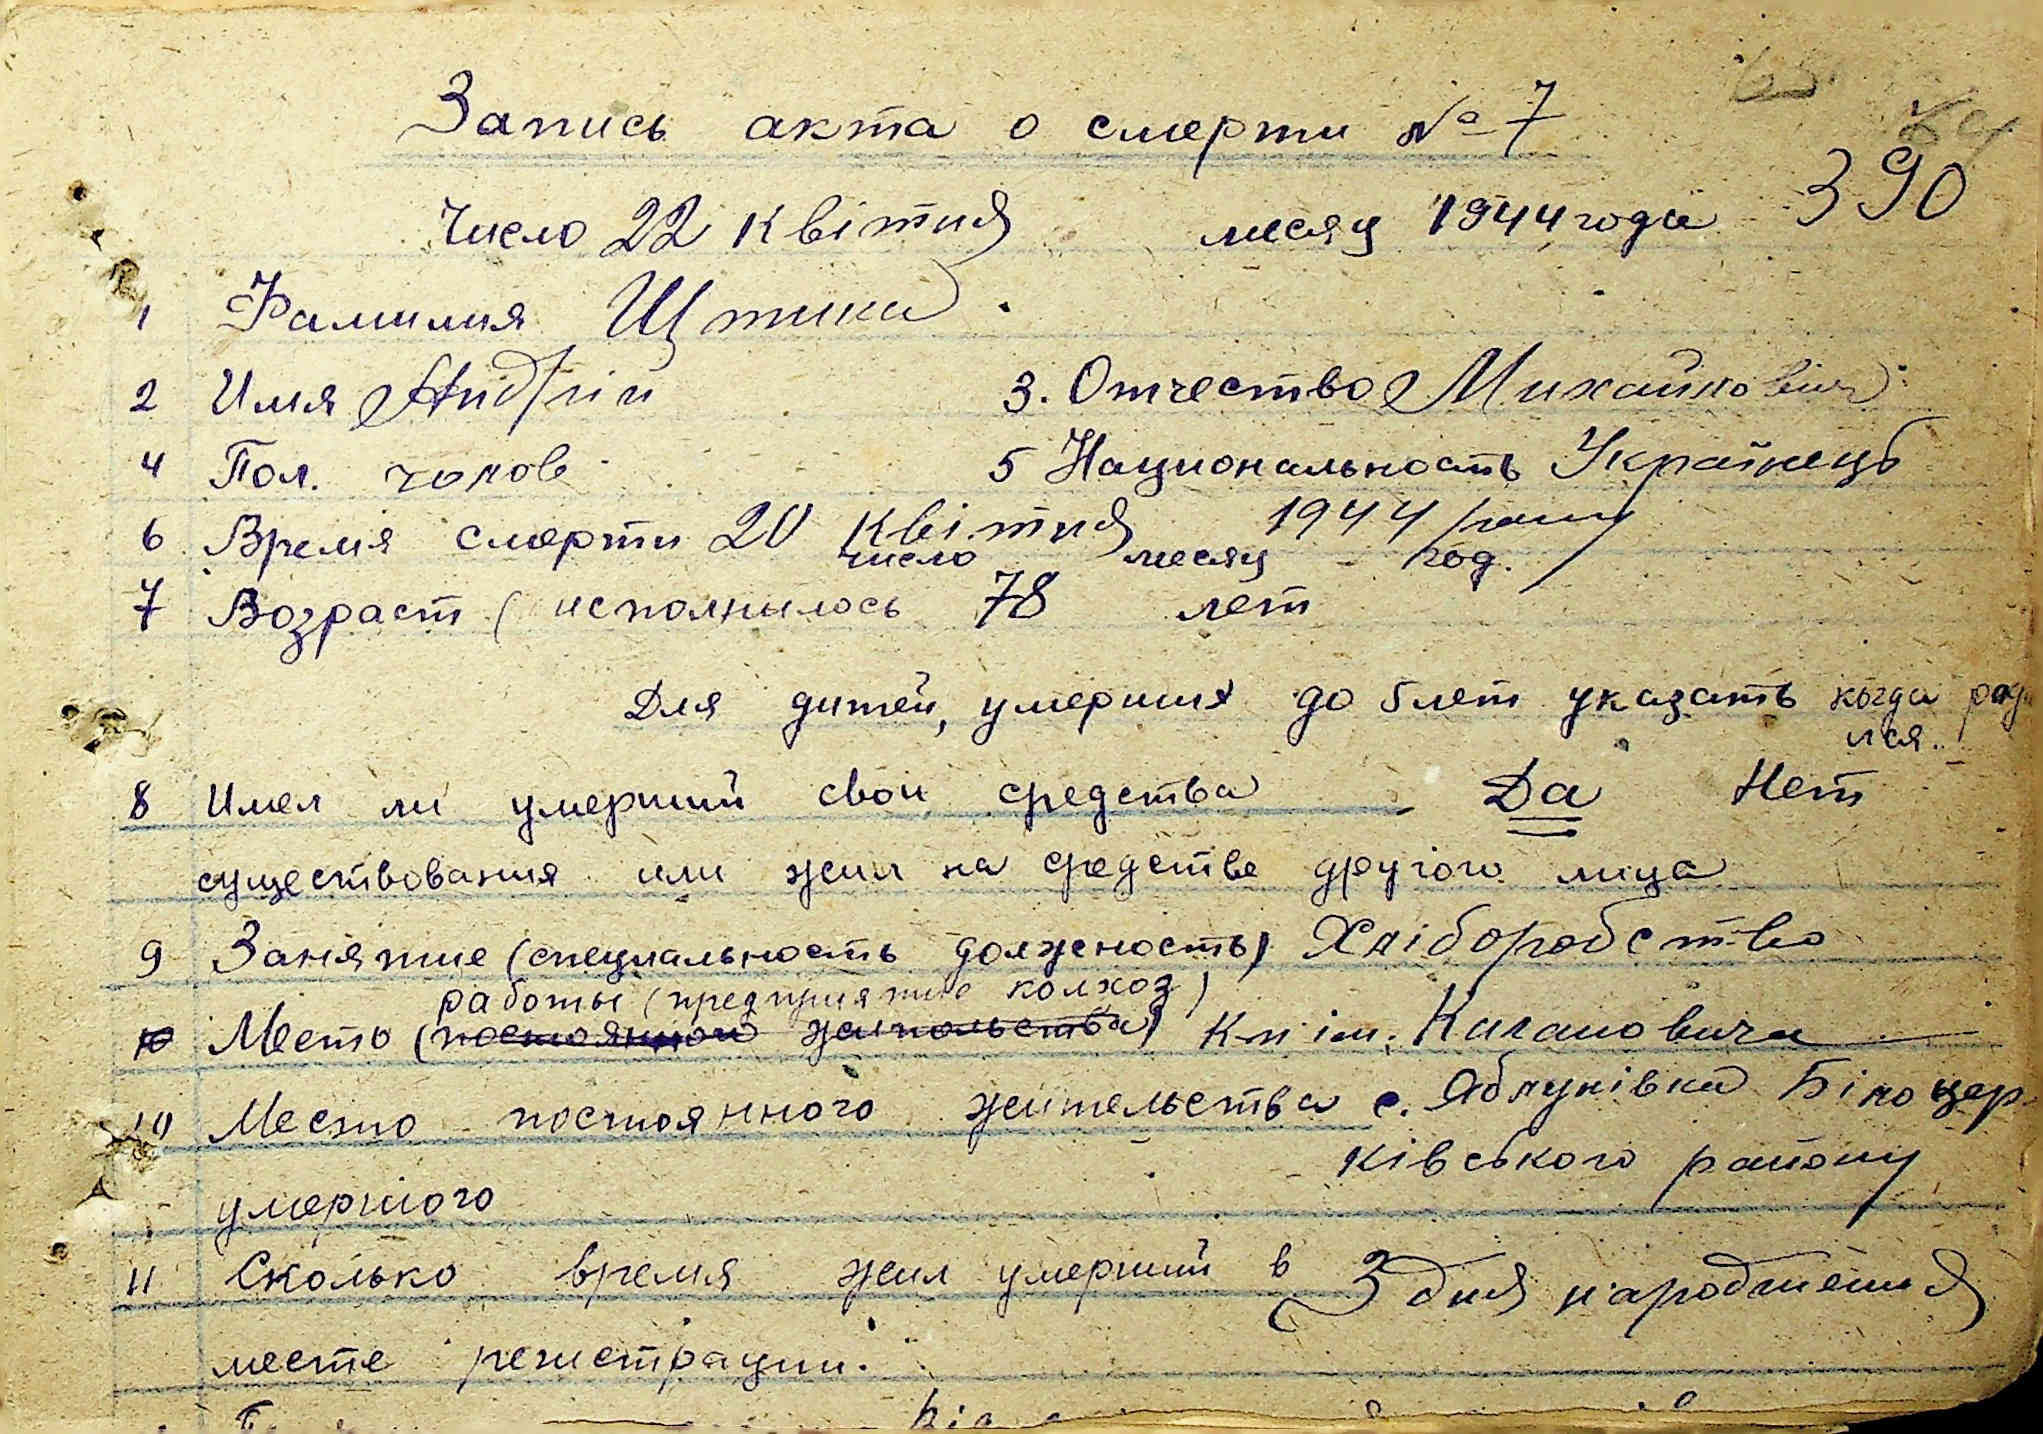 Запись акта о смерти № 7
390
Число 22 квітня месяц 1944 года
1 Фамилия
2 Имя Андрій 3. Отчество Михайлович
4 Пол. чолов. 5 Национальность Українець
6 Время смерти 20 квітня 1944 року
число месяц год.
7 Возраст (исполнылось 78 лет
Для дитей, умерших до 5 лет указать когда роди
лся.
8 Имел ли умерший свои средства Да Нет
существования или жил на средстве другого лица
9 Занятие (специальность должность) Хліборобство
работы (предприятие колхоз)
10 Место (постоянного жительства) К-п ім. Кагановича
10 Место постоянного жительства с. Яблунівка Білоцер-
ківського району
умершого
11 Сколько время жил умерший в З дня народження
месте регистрации.